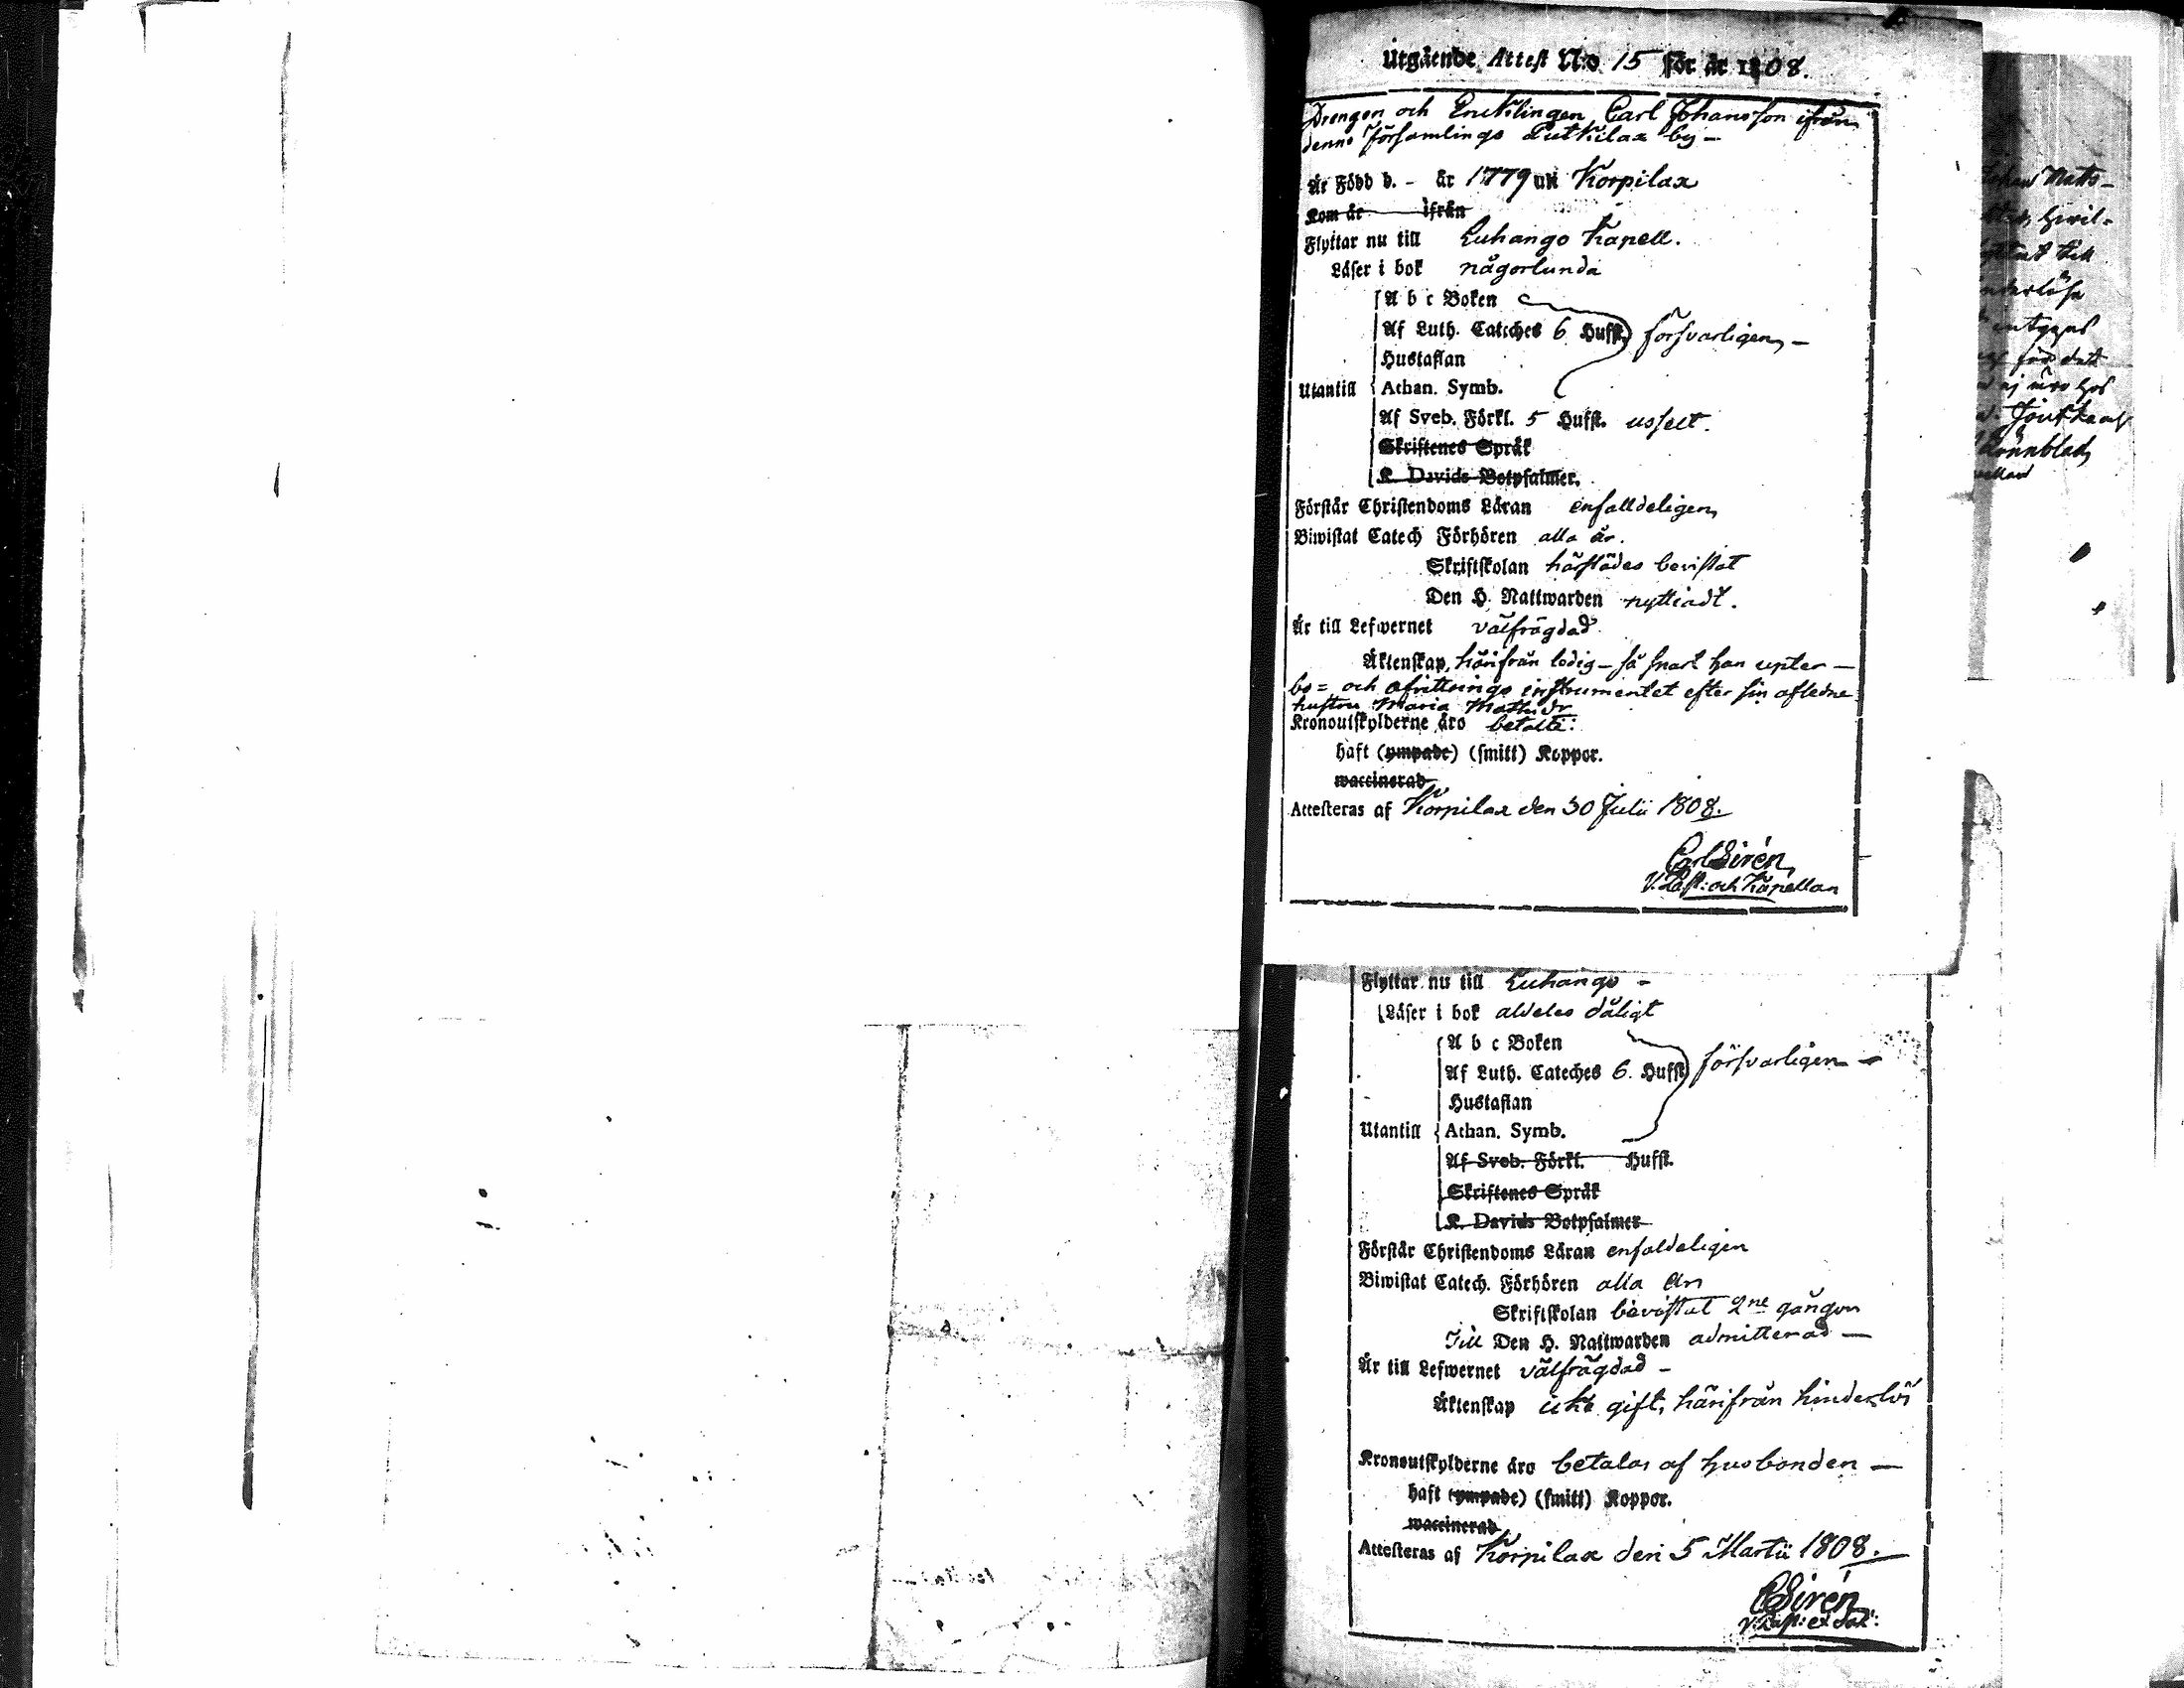 Utgående Attest N:o 15 för år 1808.
Drengen och Enklingen Carl Johansson ifrån
denne Församlings Putkilax by –
Är Född d. – år 1779 uti Korpilax
Kom år ifrån
Flyttar nu till Luhango Kapell.
Läser i bok någorlunda
A b c Boken
Af Luth. Cateches 6 Hufst. försvarligen –
Hustaflan
Utantill Athan. Symb.
Af Sveb. Förkl. 5 Hufst. usselt.
Skriftenes Språk
K. Davids Botpsalmer.
Förstår Christendoms Läran enfalldeligen
Biwistat Catech Förhören alla år.
Skriftskolan härstädes bevistat
Den H. Nattwarden nyttiadt.
Är till Lefwernet välfrägdad
Äktenskap, härifrån ledig – så snart han upter –
bo = och afvittrings instrumentet efter sin afledne
hustru Maria Matts dr
Kronoutskylderne äro betalte:
haft (ympade) (smitt) Koppor.
waccinerad
Attesteras af Korpilax den 30 Julii 1808.
Carl Sirén
V. Past: och Kapellan
Flyttar nu till Luhango –
Läser i bok aldeles dåligt
A b c Boken
Af Luth. Cateches 6. Hufst. försvarligen –
Hustaflan
Utantill Athan. Symb.
Af Sveb. Förkl. Hufst.
Skriftenes Språk
K. Davids Botpsalmer
Förstår Christendoms Läran enfaldeligen
Biwistat Catech. Förhören alla åhr
Skriftskolan bevistat 2ne gånger
Till Den H. Nattwarden admitterad –
Är till Lefwernet välfrägdad –
Äktenskap icke gift, härifrån hinderlös
Kronoutskylderne äro betalas af husbonden –
haft (ympade) (smitt) Koppor.
waccinerad
Attesteras af Korpilax den 5 Martii 1808.
C Sirén
V: Past: et Sac: